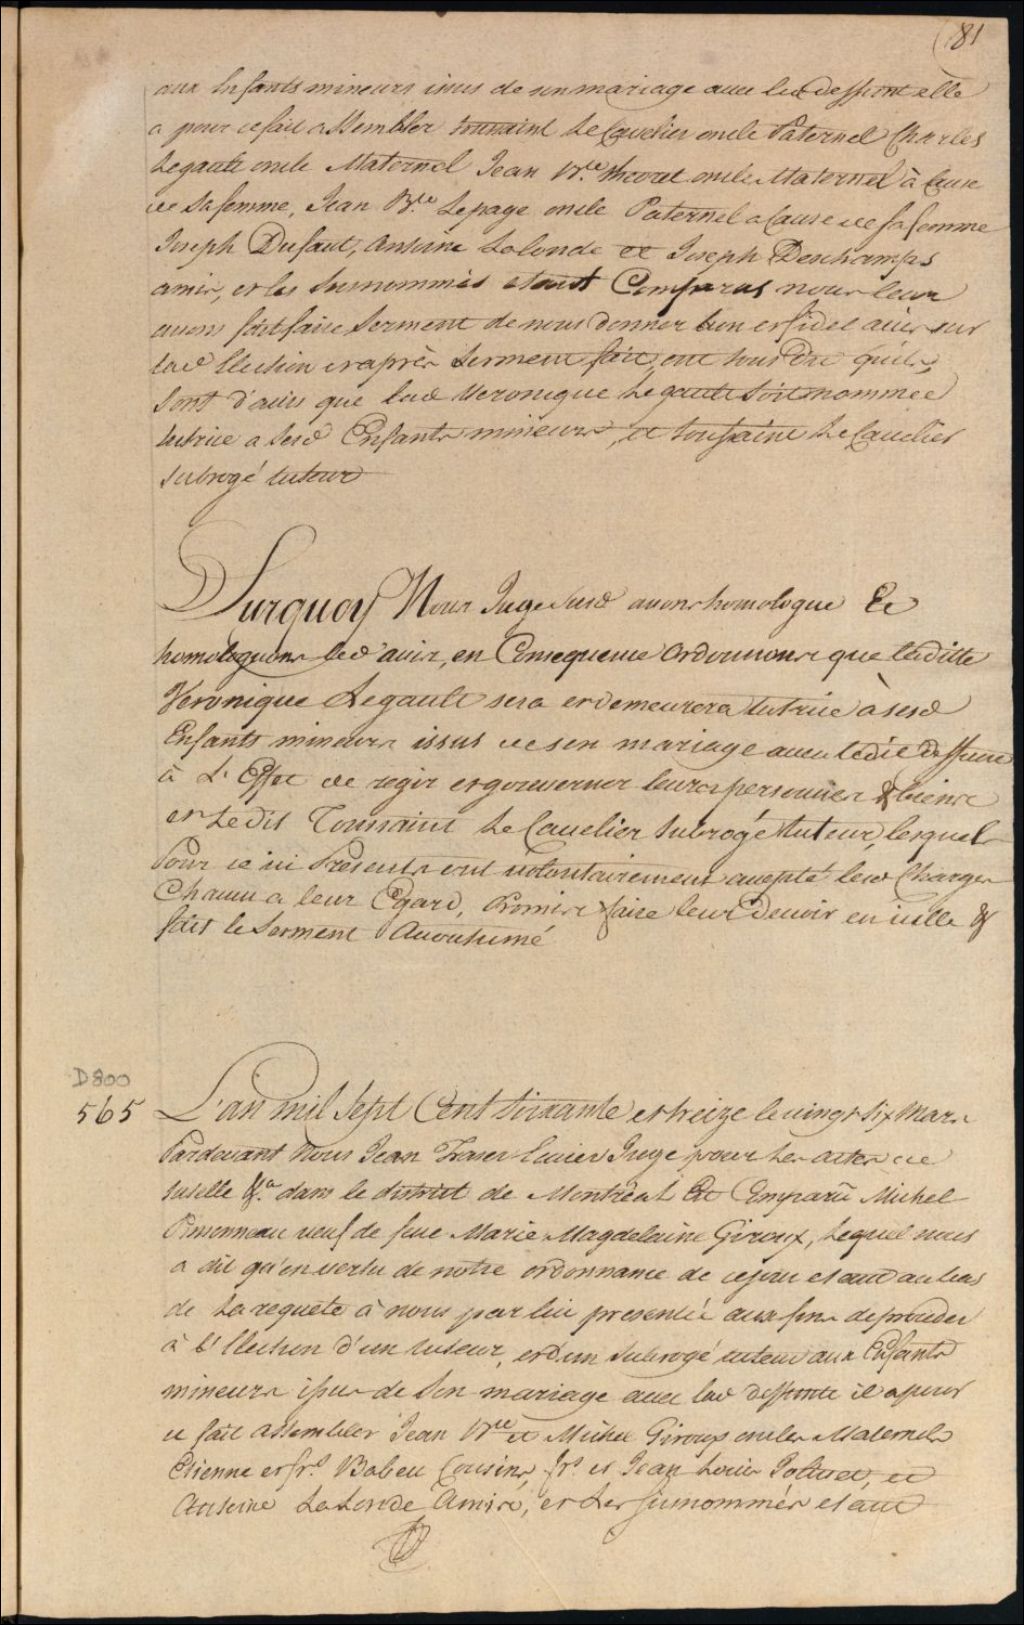 81
aux Enfants mineurs issus de son mariage avec led deffunt elle
a pour ce fait assembler toussaint Le Cavelier oncle Paternel Charles
Legault oncle Maternel Jean Bte. theoret oncle Maternel à Cause
de sa femme, Jean Bte. Lepage oncle Paternel a Cause de sa femme
Joseph Dufaut, Antoine Lalonde et Joseph Deschamps
amis, et les surnommés etant Comparus nous leur
avons fait faire serment de nous donner bon et fidel avis sur
lad Election et après serment fait, ont tous dit qu'ils
sont d'avis que lad Veronique Legault soit nommée
tutrice a sesd Enfants mineurs, et toussaint Le Cavelier
subrogé tuteur
Surquoy Nous Juge susd avons homologue Et
homologuons led avis, en Consequence Ordonnons que laditte
Veronique Legault sera et demeurera tutrice à sesd
Enfants mineurs issus de son mariage avec ledit deffunt
à L'Effet de regir et gouverner leurs personnes & biens
et Ledit Toussaint Le Cavelier subrogé tuteur, lesquels
Pour ce ici Présents ont volontairement accepté lesd Charges
Chacun a leur Egard, Promis faire leur Devoir en icelle &
fait le serment Accoutumé
D800
565 L'an mil Sept Cent soixante et treize le vingt six Mars
Pardevant Nous Jean Fraser Ecuier Juge pour Les actes de
tutelle &a. dans le district de Montréal Est Comparû Michel
Pinonneau veuf de feue Marie Magdelaine Giroux, Lequel nous
a dit qu'en vertu de notre ordonnance de cejour etant au bas
de La requete à nous par lui presentée aux fins de proceder
à l'Election d'un tuteur, et d'un subrogé tuteur aux Enfants
mineurs issus de son mariage avec lad deffunte il a pour
ce fait assembler Jean Bte et Michel Giroux oncles Maternels
Etienne et frs. Babeu Cousins, frs. et Jean Louis, et
Antoine LaLonde Amis, et Les surnommés etant